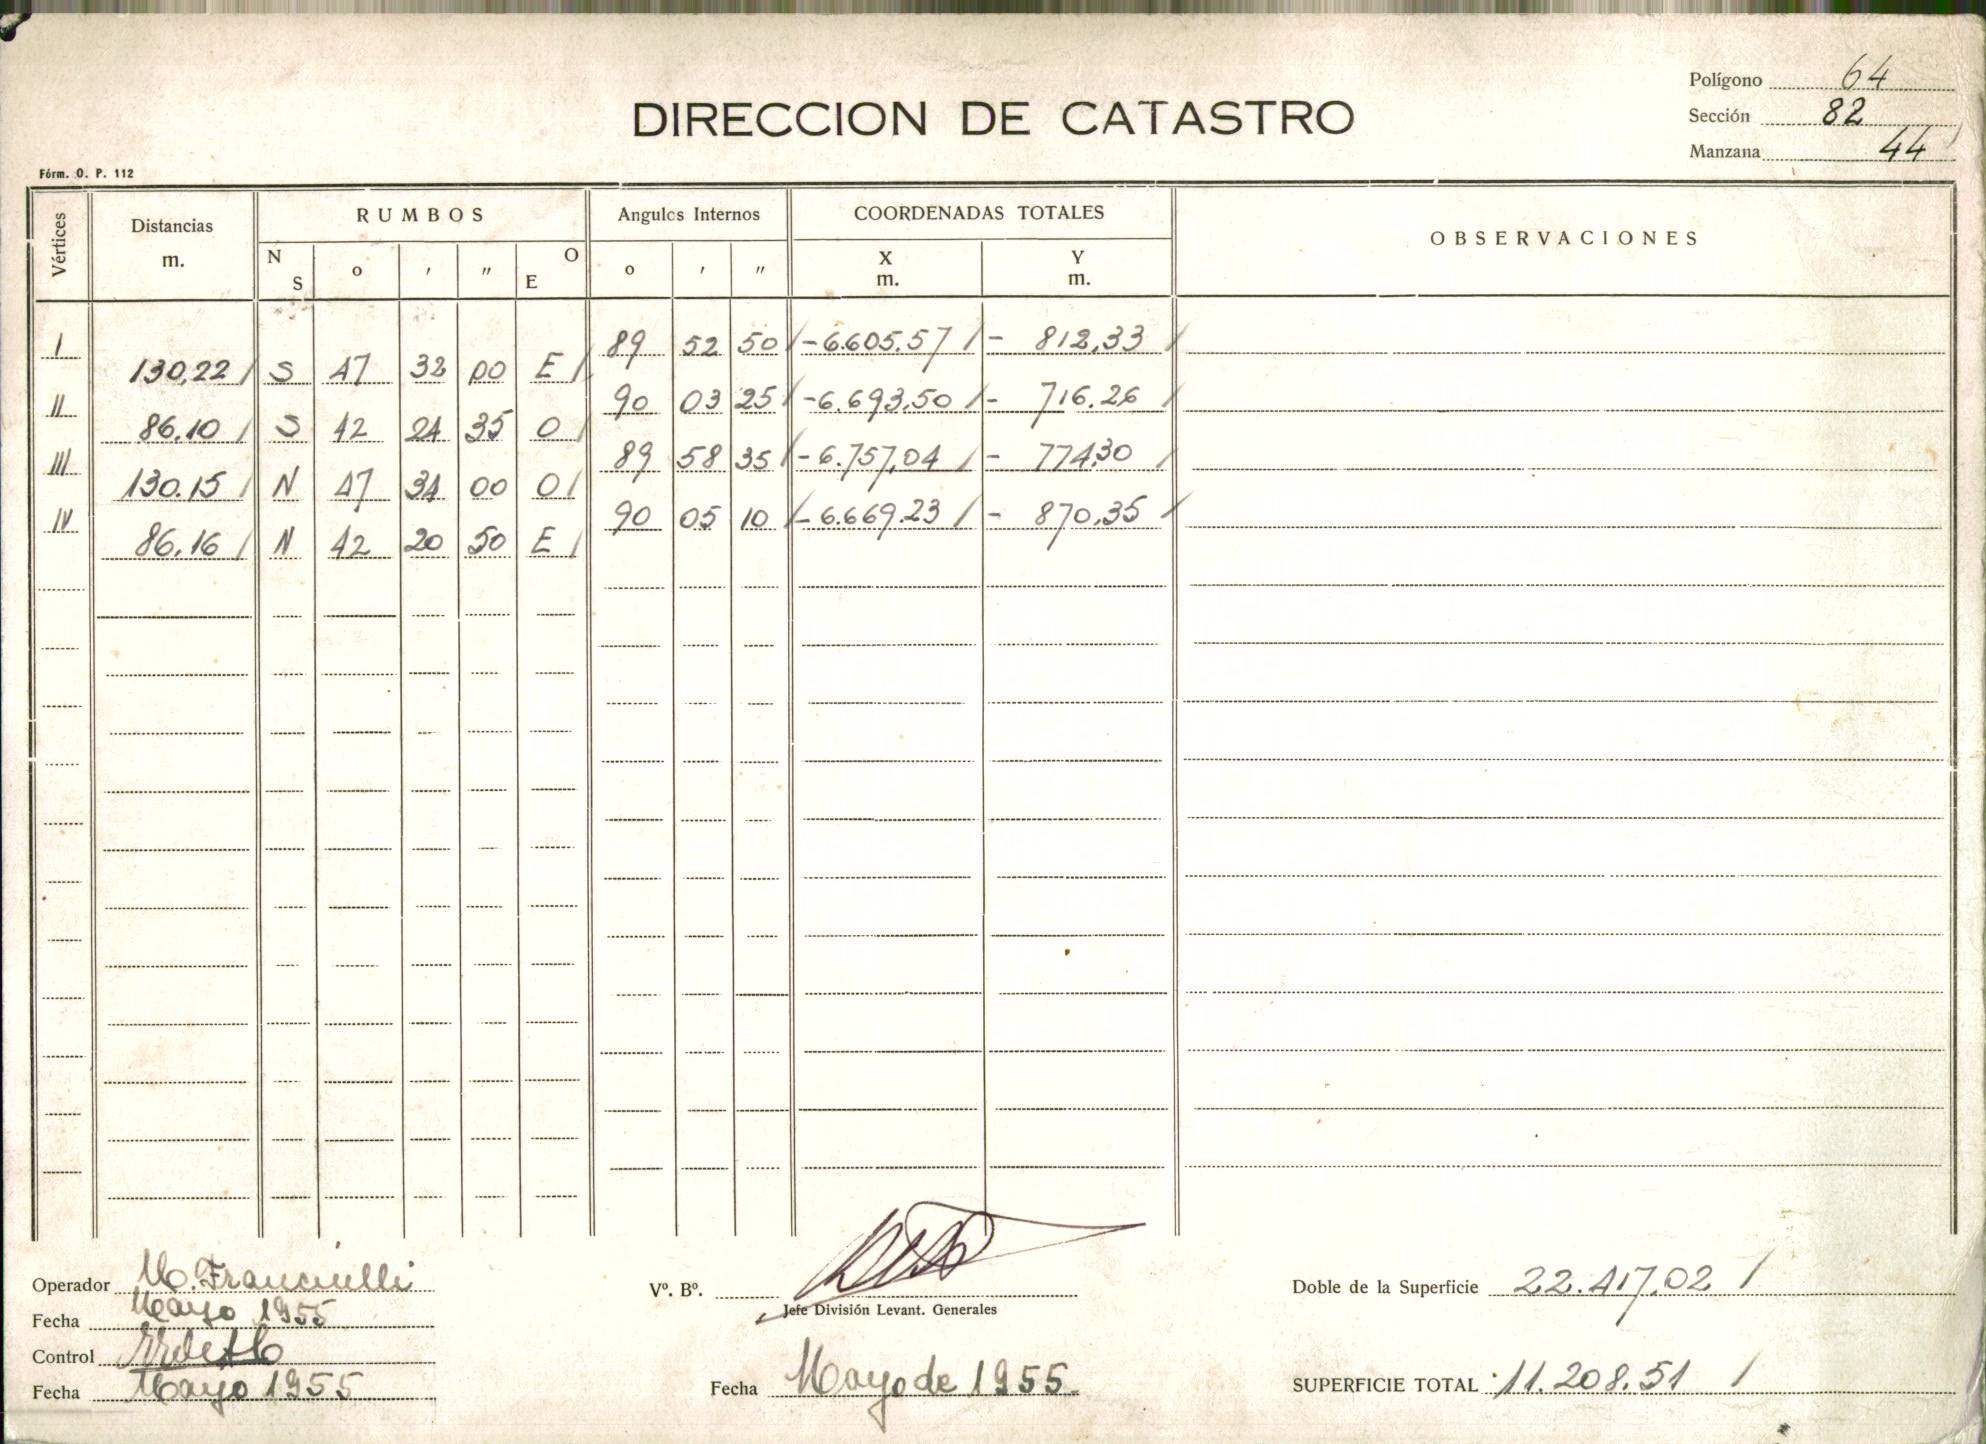 Polígono 64
DIRECCION DE CATASTRO
Sección 82
Manzana 44
Fórm. O. P. 112
Vértices Distancias m. RUMBOS Angulos Internos COORDENADAS TOTALES OBSERVACIONES
N S o ' " O E o ' " X m. Y m.
I 89 52 50 -6.605.57 - 812,33
130,22 S 47 32 00 E
II 90 03 25 -6.693,50 - 716.26
86.10 S 42 24 35 O
III 89 58 35 -6.757,04 - 774,30
130.15 N 47 34 00 O
IV 90 05 10 -6.669.23 - 870,35
86.16 N 42 20 50 E
Operador M. Franciulli
Fecha Mayo 1955
Control
Fecha Mayo 1955
Vº. Bº.
Jefe División Levant. Generales
Fecha Mayo de 1955.
Doble de la Superficie 22.417.02
SUPERFICIE TOTAL 11.208.51